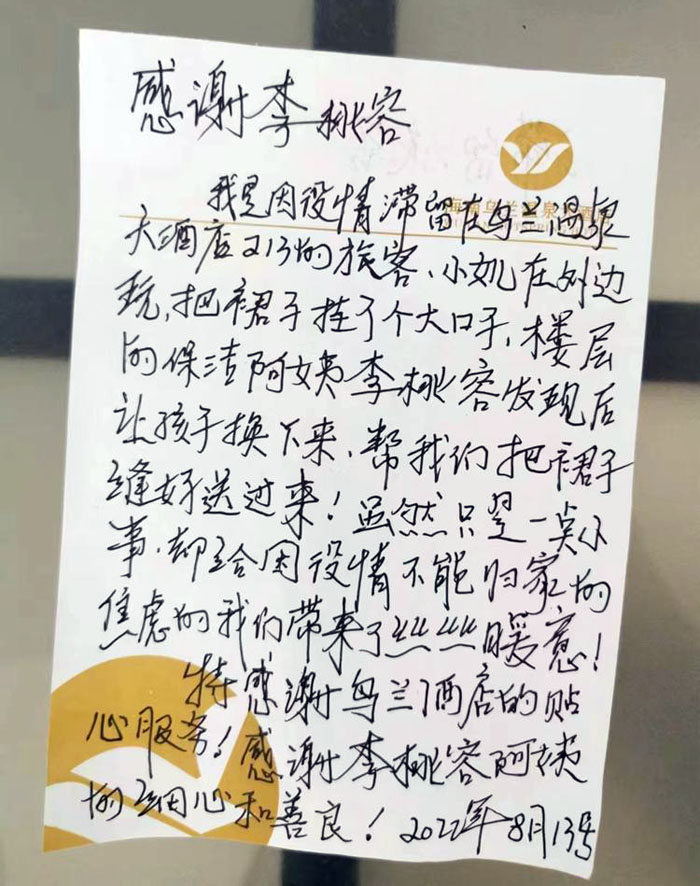 感谢李桃容
海南乌兰温泉酒店
我是因役情滞留在乌兰温泉
大酒店213的旅客、小女儿在外边
玩,把裙子挂了个大口子,楼层
的保洁阿姨李桃容发现后
让孩子换下来,帮我们把裙子
缝好送过来!虽然只是一点小
事,却给因役情不能归家的
焦虑的我们带来了丝丝暖意!
特感谢乌兰酒店的贴
心服务!感谢李桃容阿姨
的细心和善良!2022年8月13号